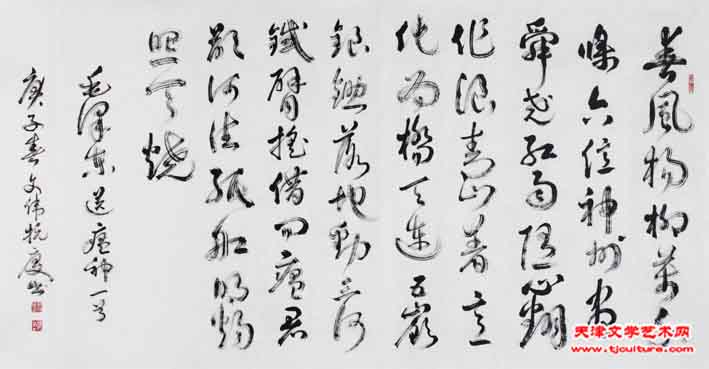 春風杨柳萬千
條六億神州尽
舜尧红雨随心翻
作浪青山着意
化为橋天連五嶺
銀锄落地動三河
鐵臂摇借问瘟君
欲何往纸船明烛
照天烧
毛泽东送瘟神一首
庚子春文伟抗疫书
天津文学艺术网
www.tjculture.com